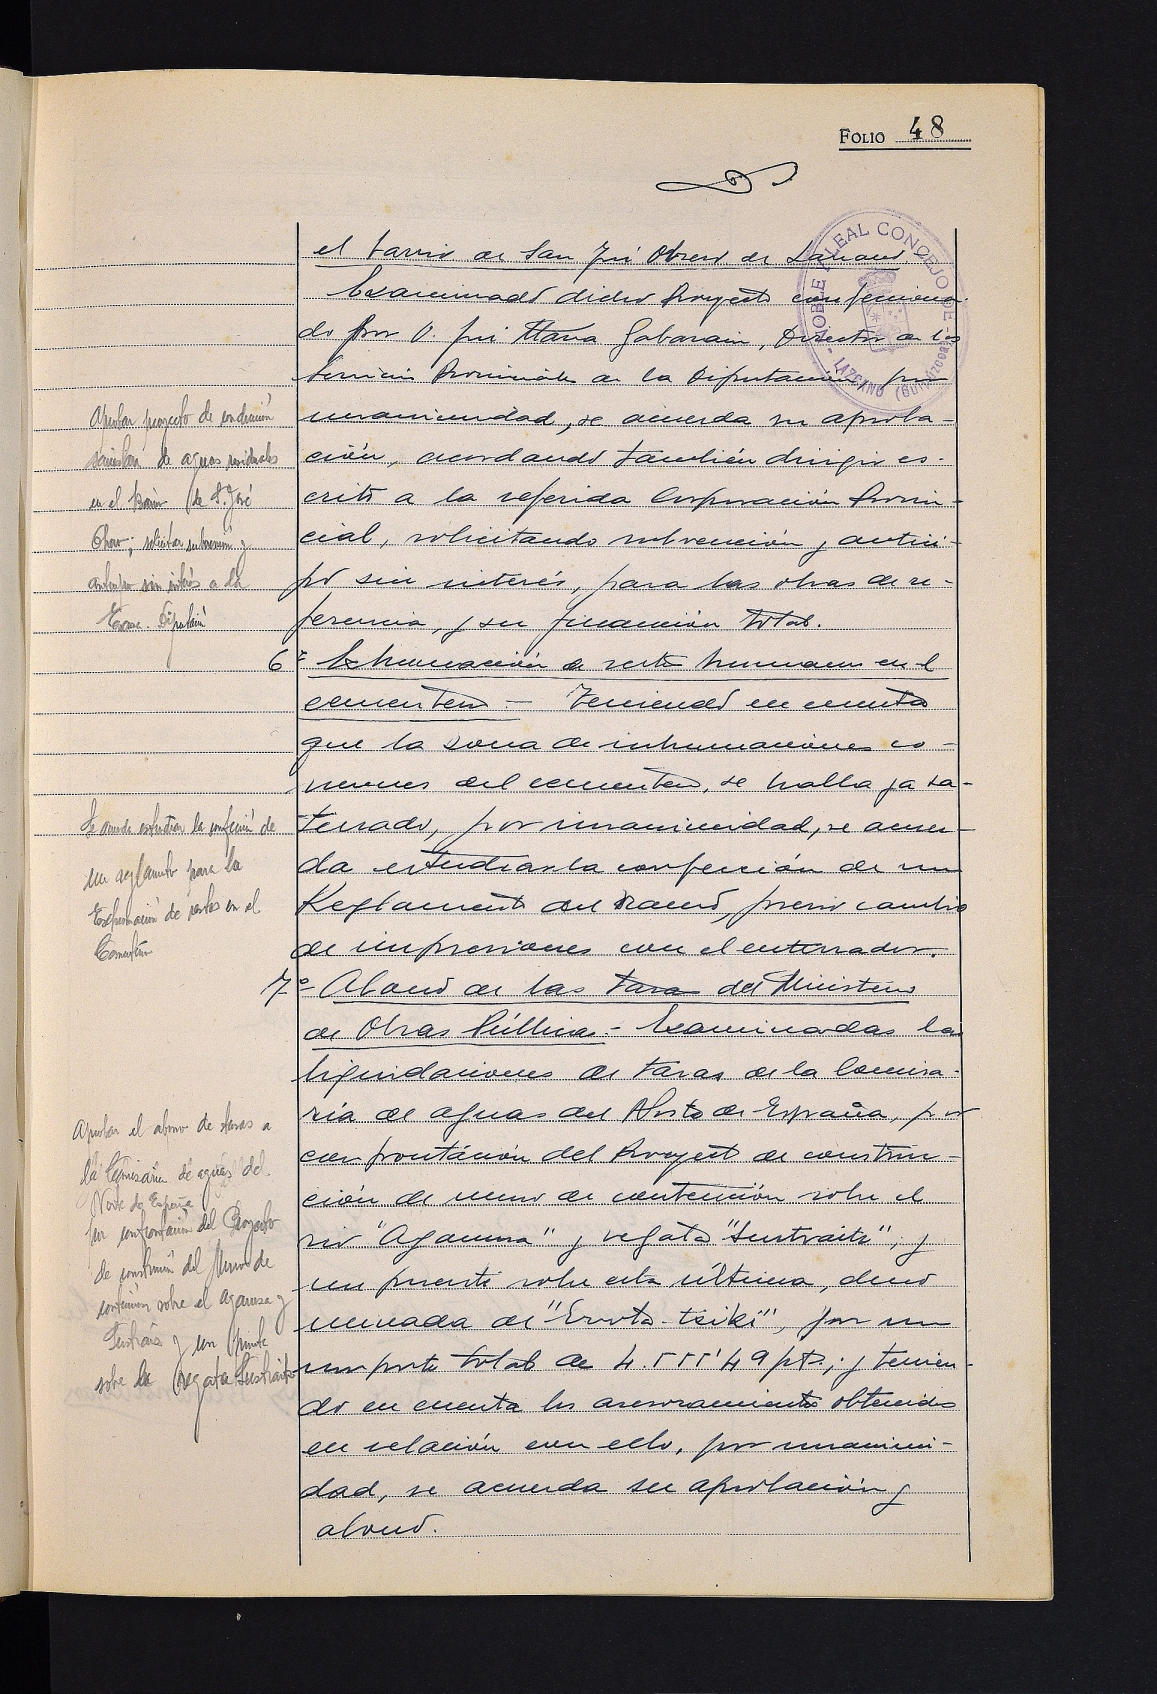 FOLIO 48
NOBLE Y LEAL CONCEJO DE
LAZCANO (GUIPUZCOA)
el barrio de San José Obrero de Lazcano
Examinado dicho Proyecto confecciona-
do por D. José María Gabarain, Director de los
Servicios Provinciales de la Diputación, por
unanimidad, se acuerda su aproba-
ción, acordando también dirigir es-
crito a la referida Corporación Provin-
cial, solicitando subvención y antici-
po sin interés, para las obras de re-
ferencia, y su financión total.
6º Exhumación de restos humanos en el
cementerio.- Teniendo en cuenta
que la zona de inhumaciones co-
munes del cementerio, se halla ya sa-
terrado, por unanimidad, se acuer-
da estudiar la confección de un
Reglamento del ramo, previo cambio
de impresiones con el enterrador.
7º Abono de las tasas del Ministerio
de Obras Públicas.- Examinadas las
liquidaciones de tasas de la Comisa-
ría de aguas del Norte de España, por
confrontación del Proyecto de construc-
ción de muro de contención sobre el
río "Agaunza" y regata "Sustraitz", y
un puente sobre esta última, deno
minada de "Errota-txiki", por un
importe total de 4.555'49 pts.; y tenien-
do en cuenta los asesoramientos obtenidos
en relación con ello, por unanimi-
dad, se acuerda su aprobación y
abono.
Aprobar proyecto de conducción
de aguas residuales
en el Barrio de S. José
Obrero; solicitar subvención y
anticipo sin interés a la
Excma. Diputación
Se acuerda estudiar la confección de
un reglamento para la
Exhumación de restos en el
Cementerio
Aprobar el abono de tasas a
la Comisaría de aguas del
Norte de España
por confrontación del Proyecto
de construcción del Muro de
contención sobre el Agaunza y
y un puente
sobre la Regata Sustraitz